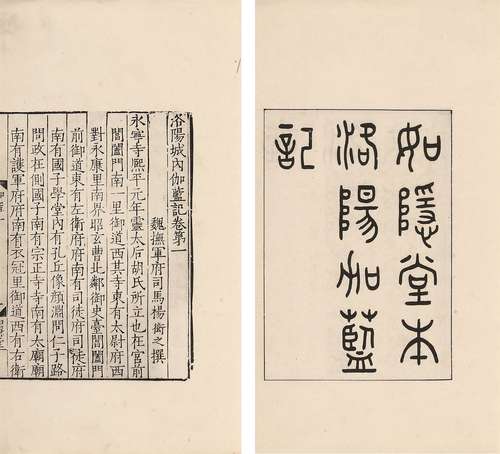 如隱堂本
洛陽伽藍
記
洛陽城內伽藍記卷第一
魏撫軍府司馬楊衒之撰
永寧寺熙平元年靈太后胡氏所立也在宮前
閶闔門南一里御道西其寺東有太尉府西
對永康里南界昭玄曹北鄰御史臺閶闔門
前御道東有左衛府府南有司徒府司徒府
南有國子學堂內有孔丘像顏淵問仁子路
問政在側國子南有宗正寺寺南有太廟廟
南有護軍府府南有衣冠里御道西有右衛